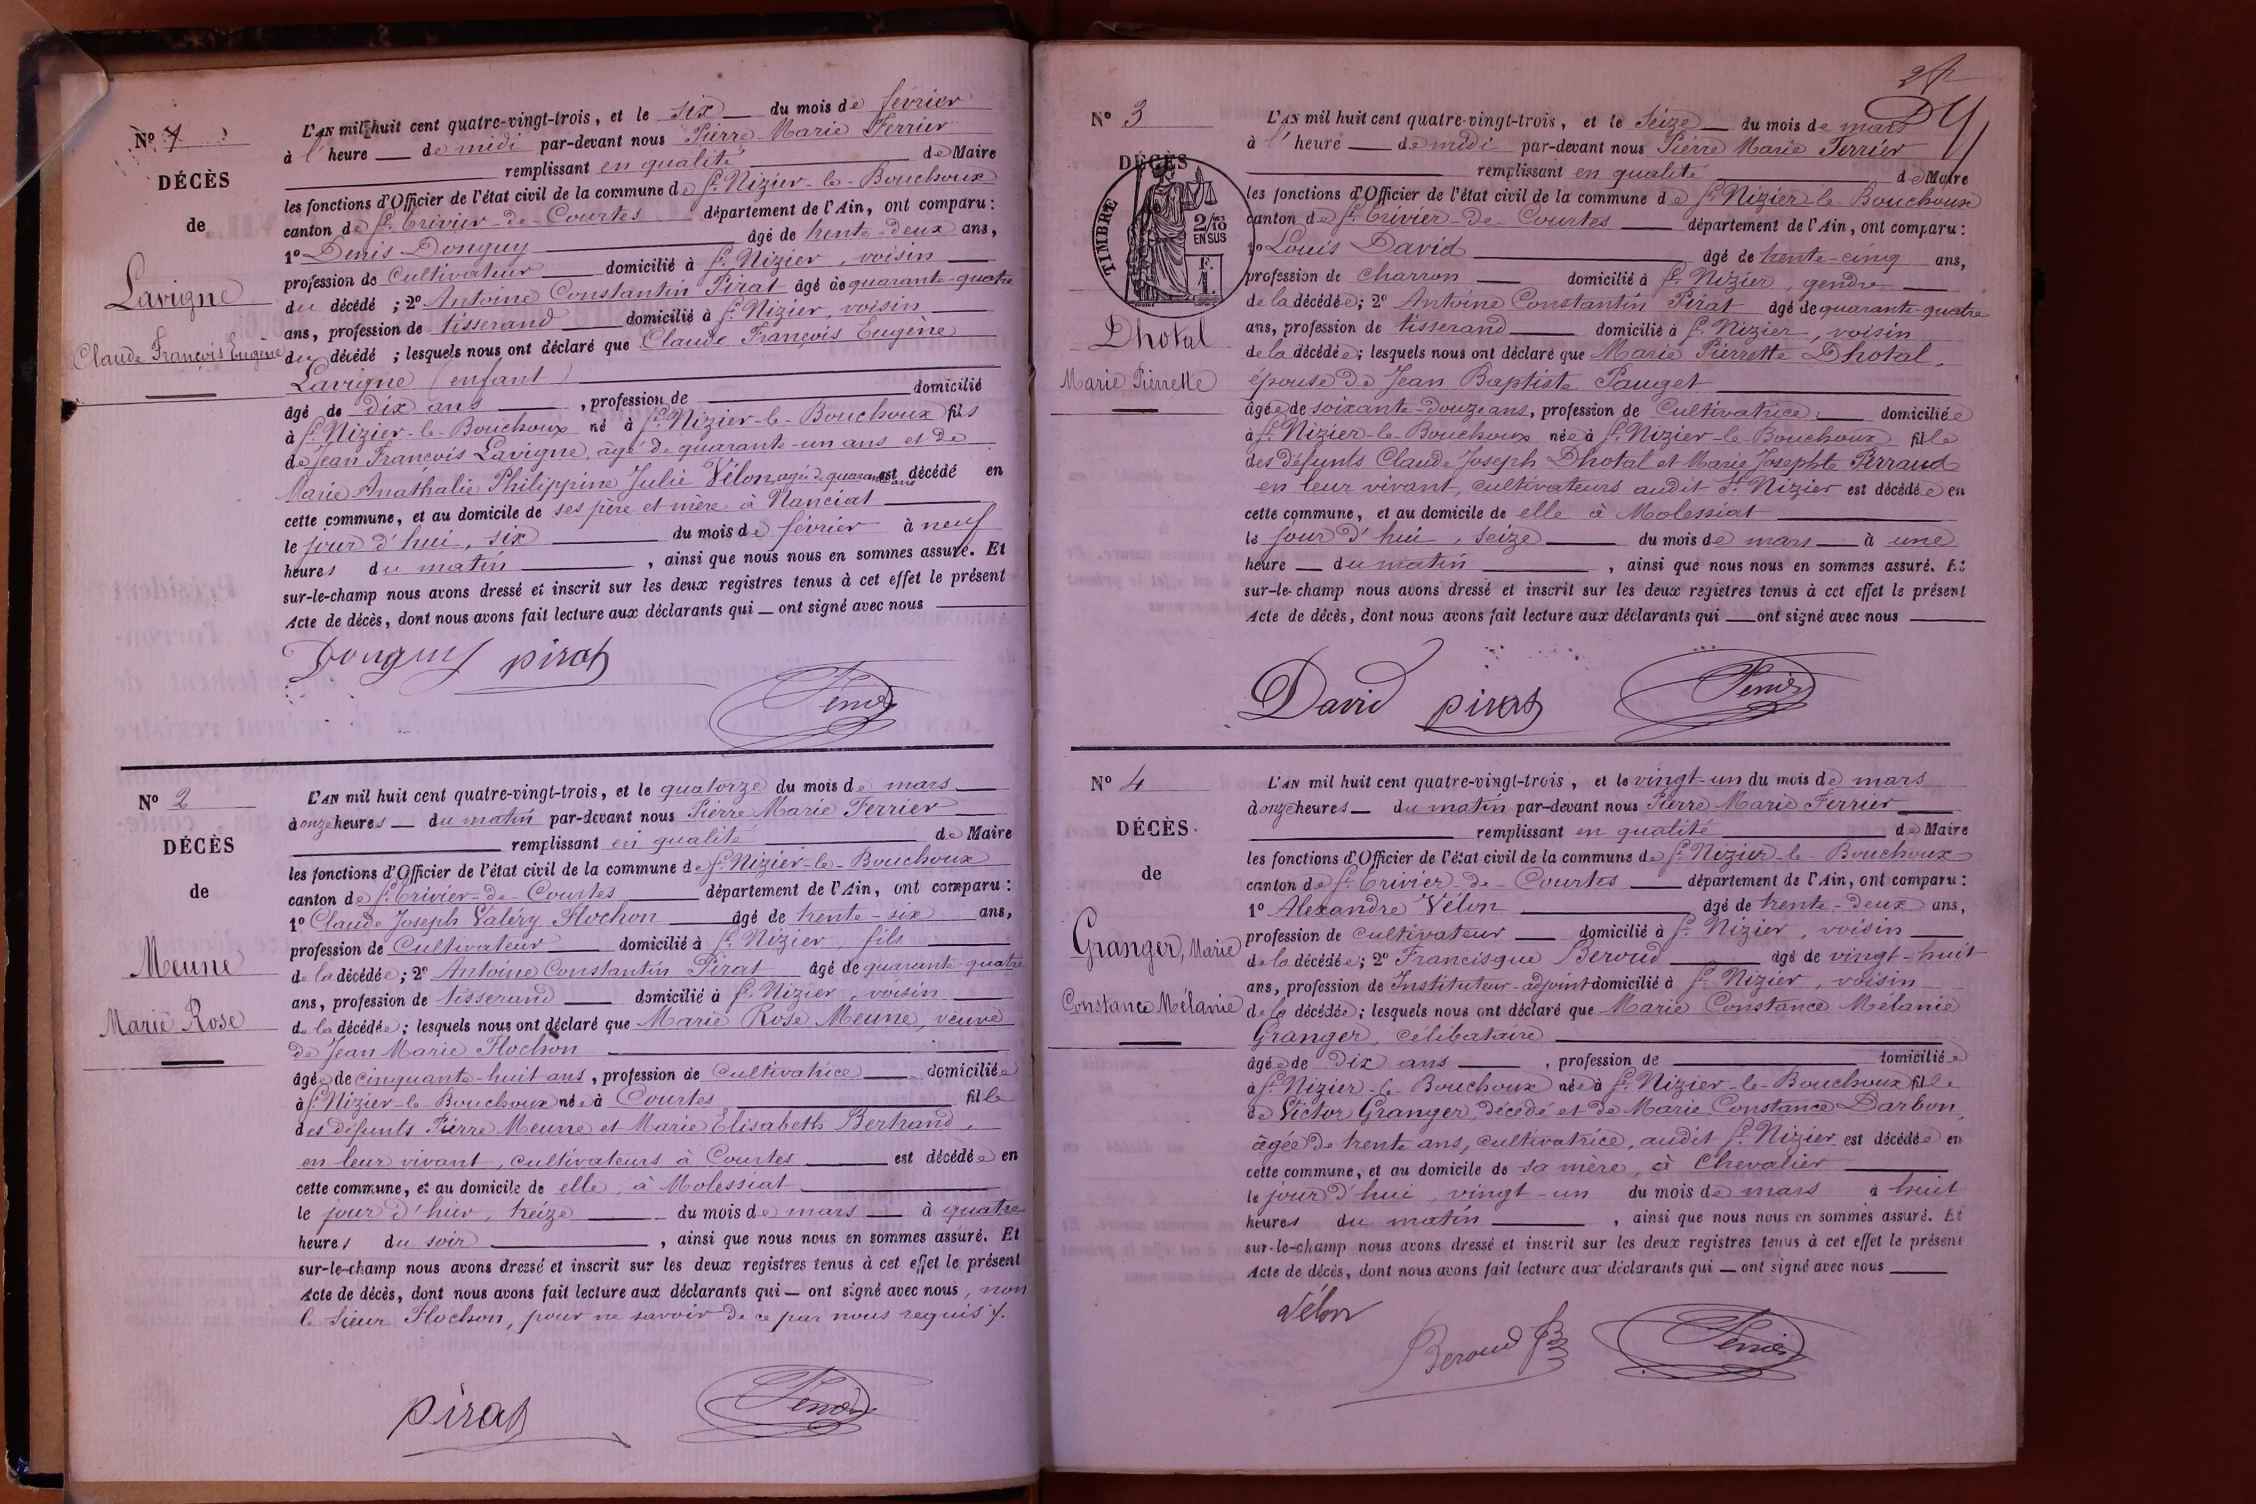 Nº 1
DÉCÈS
de
Lavigne
Claude François Eugène
L'AN mil huit cent quatre-vingt-trois, et le six du mois de février
à l'heure de midi par-devant nous Pierre Marie Ferrier
remplissant en qualité de Maire
les fonctions d'Officier de l'état civil de la commune de St. Nizier-le-Bouchoux
canton de St. Trivier-de-Courtes département de l'Ain, ont comparu :
1º Denis Donguy âgé de trente-deux ans,
profession de Cultivateur domicilié à St. Nizier, voisin
du décédé ; 2º Antoine Constantin Pirat âgé de quarante-quatre
ans, profession de tisserand domicilié à St. Nizier, voisin
du décédé ; lesquels nous ont déclaré que Claude François Eugène
Lavigne (enfant)
âgé de dix ans, profession de domicilié
à St. Nizier-le-Bouchoux né à St. Nizier-le-Bouchoux fils
de Jean François Lavigne, âgé de quarante-un ans et de
Marie Anathalie Philippine Julie Vélon, agée de quarante ans est décédé en
cette commune, et au domicile de ses père et mère à Nanciat
le jour d'hui, six du mois de février à neuf
heures du matin, ainsi que nous nous en sommes assuré. Et
sur-le-champ nous avons dressé et inscrit sur les deux registres tenus à cet effet le présent
Acte de décès, dont nous avons fait lecture aux déclarants qui — ont signé avec nous
Donguy pirat
Ferrier
Nº 2
DÉCÈS
de
Meune
Marie Rose
L'AN mil huit cent quatre-vingt-trois, et le quatorze du mois de mars
à onze heures du matin par-devant nous Pierre Marie Ferrier
remplissant en qualité de Maire
les fonctions d'Officier de l'état civil de la commune de St. Nizier-le-Bouchoux
canton de St. Trivier-de-Courtes département de l'Ain, ont comparu :
1º Claude Joseph Valéry Flochon âgé de trente-six ans,
profession de Cultivateur domicilié à St. Nizier, fils
de la décédée ; 2º Antoine Constantin Pirat âgé de quarante-quatre
ans, profession de tisserand domicilié à St. Nizier, voisin
de la décédée ; lesquels nous ont déclaré que Marie Rose Meune, veuve
de Jean Marie Flochon
âgée de cinquante-huit ans, profession de Cultivatrice domiciliée
à St. Nizier-le-Bouchoux née à Courtes fille
des défunts Pierre Meune et Marie Elisabeth Bertrand,
en leur vivant, cultivateurs à Courtes est décédée en
cette commune, et au domicile de elle, à Molessiat
le jour d'hier, treize du mois de mars à quatre
heures du soir, ainsi que nous nous en sommes assuré. Et
sur-le-champ nous avons dressé et inscrit sur les deux registres tenus à cet effet le présent
Acte de décès, dont nous avons fait lecture aux déclarants qui — ont signé avec nous, non
le sieur Flochon, pour ne savoir de ce par nous requis
pirat Ferrier
Nº 3
DÉCÈS
TIMBRE
2/10
EN SUS
F.
1.
Dhotal
Marie Pierrette
L'AN mil huit cent quatre-vingt-trois, et le Seize du mois de mars
à l'heure de midi par-devant nous Pierre Marie Ferrier
remplissant en qualité de Maire
les fonctions d'Officier de l'état civil de la commune de St. Nizier-le-Bouchoux
canton de St. Trivier-de-Courtes département de l'Ain, ont comparu :
1º Louis David âgé de trente-cinq ans,
profession de charron domicilié à St. Nizier, gendre
de la décédée ; 2º Antoine Constantin Pirat âgé de quarante-quatre
ans, profession de tisserand domicilié à St. Nizier, voisin
de la décédée ; lesquels nous ont déclaré que Marie Pierrette Dhotal,
épouse de Jean Baptiste Pauget
âgée de soixante-douze ans, profession de Cultivatrice domiciliée
à St. Nizier-le-Bouchoux née à St. Nizier-le-Bouchoux fille
des défunts Claude Joseph Dhotal et Marie Josephte Perraud
en leur vivant, cultivateurs audit St. Nizier est décédée en
cette commune, et au domicile de elle à Molessiat
le jour d'hui, seize du mois de mars à une
heure du matin, ainsi que nous nous en sommes assuré. Et
sur-le-champ nous avons dressé et inscrit sur les deux registres tenus à cet effet le présent
Acte de décès, dont nous avons fait lecture aux déclarants qui — ont signé avec nous
David pirat Ferrier
Nº 4
DÉCÈS.
de
Granger, Marie
Constance Mélanie
L'AN mil huit cent quatre-vingt-trois, et le vingt-un du mois de mars
à onze heures du matin par-devant nous Pierre Marie Ferrier
remplissant en qualité de Maire
les fonctions d'Officier de l'état civil de la commune de St. Nizier-le-Bouchoux
canton de St. Trivier-de-Courtes département de l'Ain, ont comparu :
1º Alexandre Vélon âgé de trente-deux ans,
profession de cultivateur domicilié à St. Nizier, voisin
de la décédée ; 2º Francisque Beroud âgé de vingt-huit
ans, profession de Instituteur-adjoint domicilié à St. Nizier, voisin
de la décédée ; lesquels nous ont déclaré que Marie Constance Mélanie
Granger, célibataire
âgée de Dix ans, profession de domiciliée
à St. Nizier-le-Bouchoux née à St. Nizier-le-Bouchoux fille
de Victor Granger, décédé et de Marie Constance Darbon,
âgée de trente ans, cultivatrice, audit St. Nizier est décédée en
cette commune, et au domicile de sa mère, à Chevalier
le jour d'hui, vingt-un du mois de mars à huit
heures du matin, ainsi que nous nous en sommes assuré. Et
sur-le-champ nous avons dressé et inscrit sur les deux registres tenus à cet effet le présent
Acte de décès, dont nous avons fait lecture aux déclarants qui — ont signé avec nous
Vélon
Beroud Ferrier